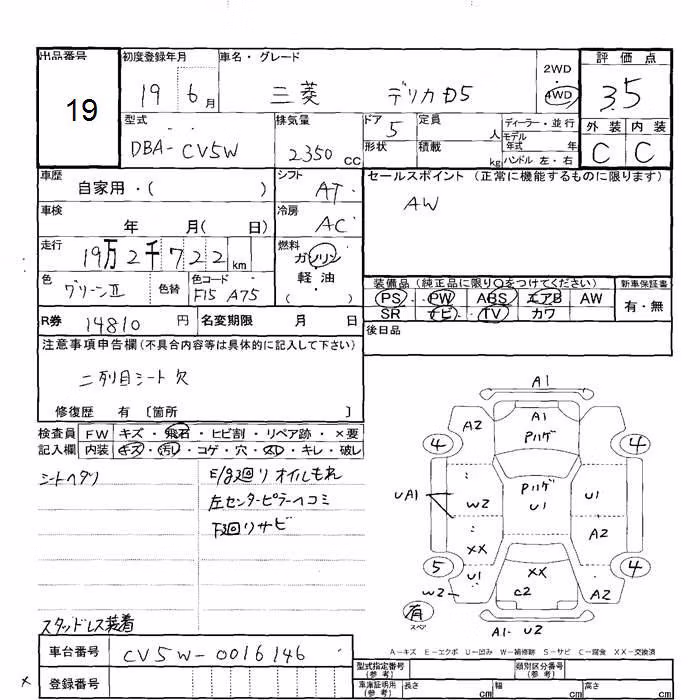 出品番号 初度登録年月 車名・グレード 評価点
19
19 6月 三菱 デリカD5 2WD ・ 4WD 3.5
型式 排気量 ドア 定員 ディーラー・並行 外装 内装
DBA-CV5W 2350 CC 5 人 モデル年式 年 C C
形状 積載 kg ハンドル 左・右
車歴 自家用・( ) シフト AT セールスポイント (正常に機能するものに限ります)
車検 年 月( 日) 冷房 AC AW
走行 19万2千722km 燃料 ガソリン
軽・油
( )
色 グリーンII 色替 色コード F15 A75
装備品 (純正品に限り○をつけてください) 新車保証書
PS ・ PW ABS エアB AW 有・無
SR ナビ・ TV カワ
R券 14810 円 名変期限 月 日 後日品
注意事項申告欄(不具合内容等は具体的に記入して下さい)
二列目シート欠
修復歴 有 〔箇所 〕
検査員 FW キズ・飛石・ヒビ割・リペア跡・×要
記入欄 内装 キズ・汚れ・コゲ・穴・欠・キレ・破レ
シートヘタリ E/g廻リオイルもれ
左センターピラーヘコミ
下廻リサビ
スタッドレス装着
A1
A2 A1 Pハゲ
4 4
Pハゲ
UA1 W2 U1 U1
XX A2
5 4
U1 XX
W2 C2 A2
有 スペア A1・U2
A-キズ E-エクボ U-凹み W-補修跡 S-サビ C-腐食 XX-交換済
車台番号 CV5W-0016146
登録番号
型式指定番号(参考) 類別区分番号(参考)
車庫証明用(参考) 長さ cm 幅 cm 高さ cm
×